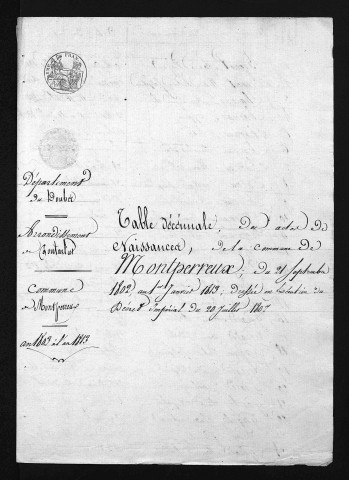 Département
du Doubs
Arrondissement
de Pontarlier
Commune
de Montperreux
an 1803 à l'an 1813
Table décennale, des actes de
Naissances, de la commune de
Montperreux, du 21 Septembre
1802 au 1er Janvier 1813, dressée en exécution du
Décret Impérial du 20 Juillet 1807